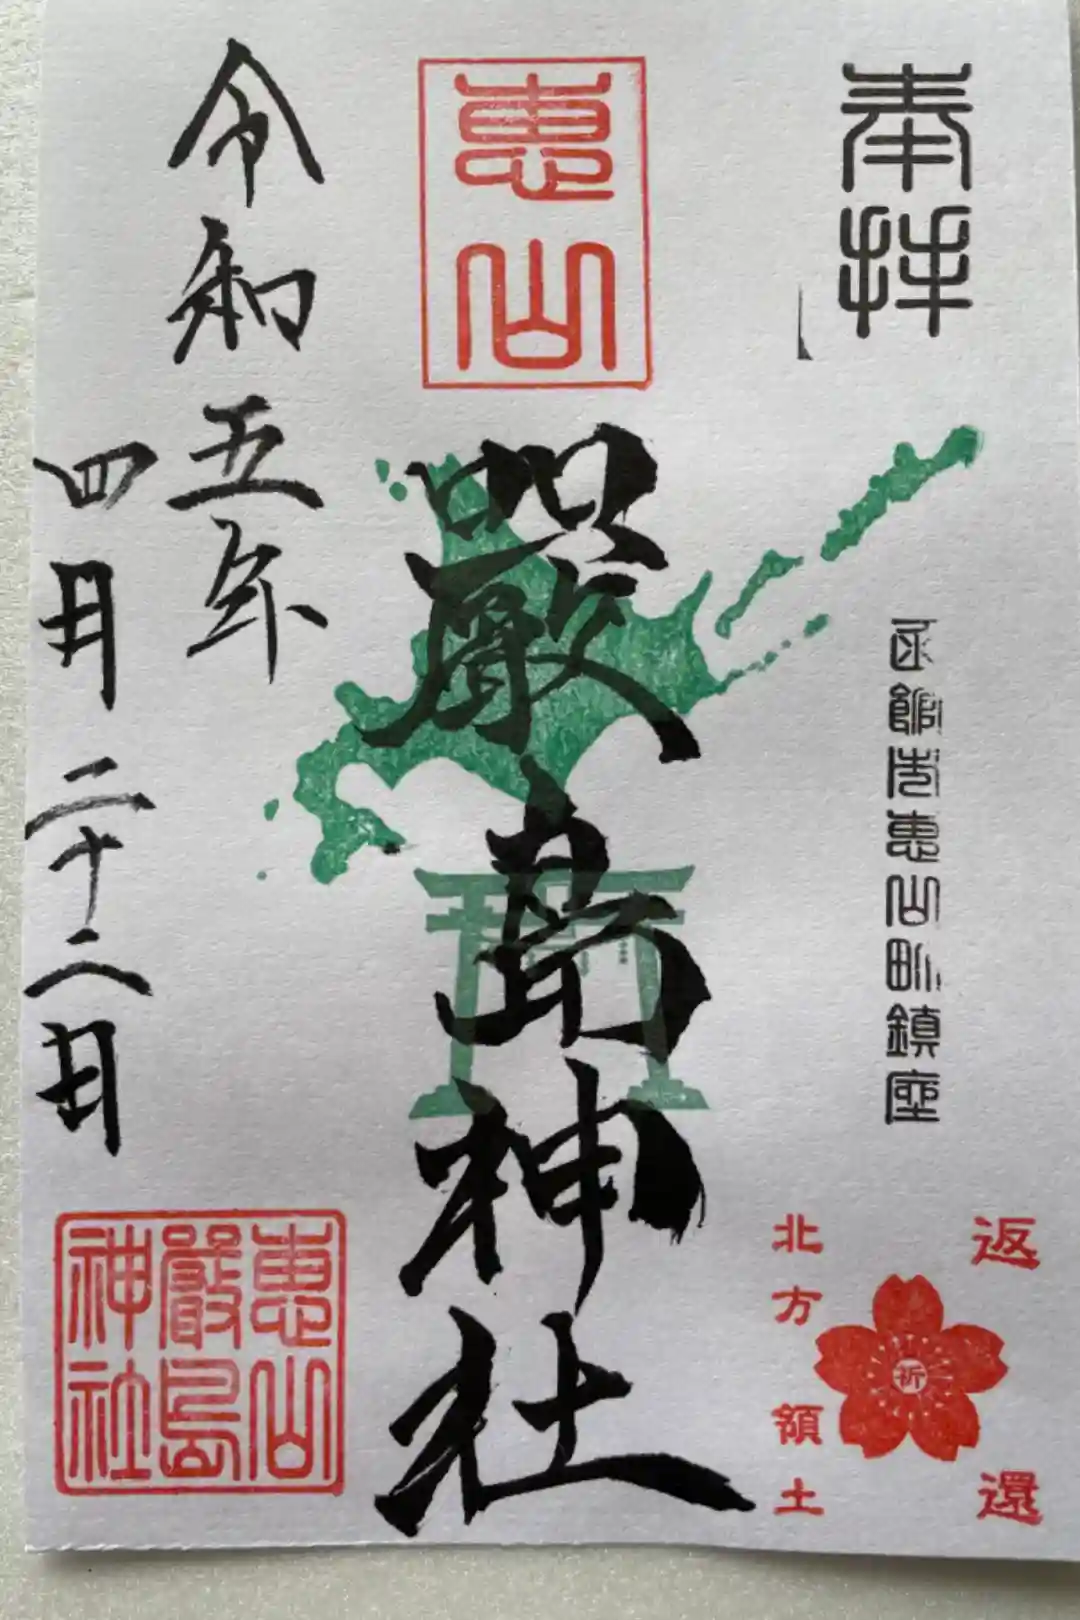 奉拝
函館市恵山町鎮座
返還
祈
北方領土
恵山
厳島神社
令和五年
四月二十二日
恵山
厳島
神社